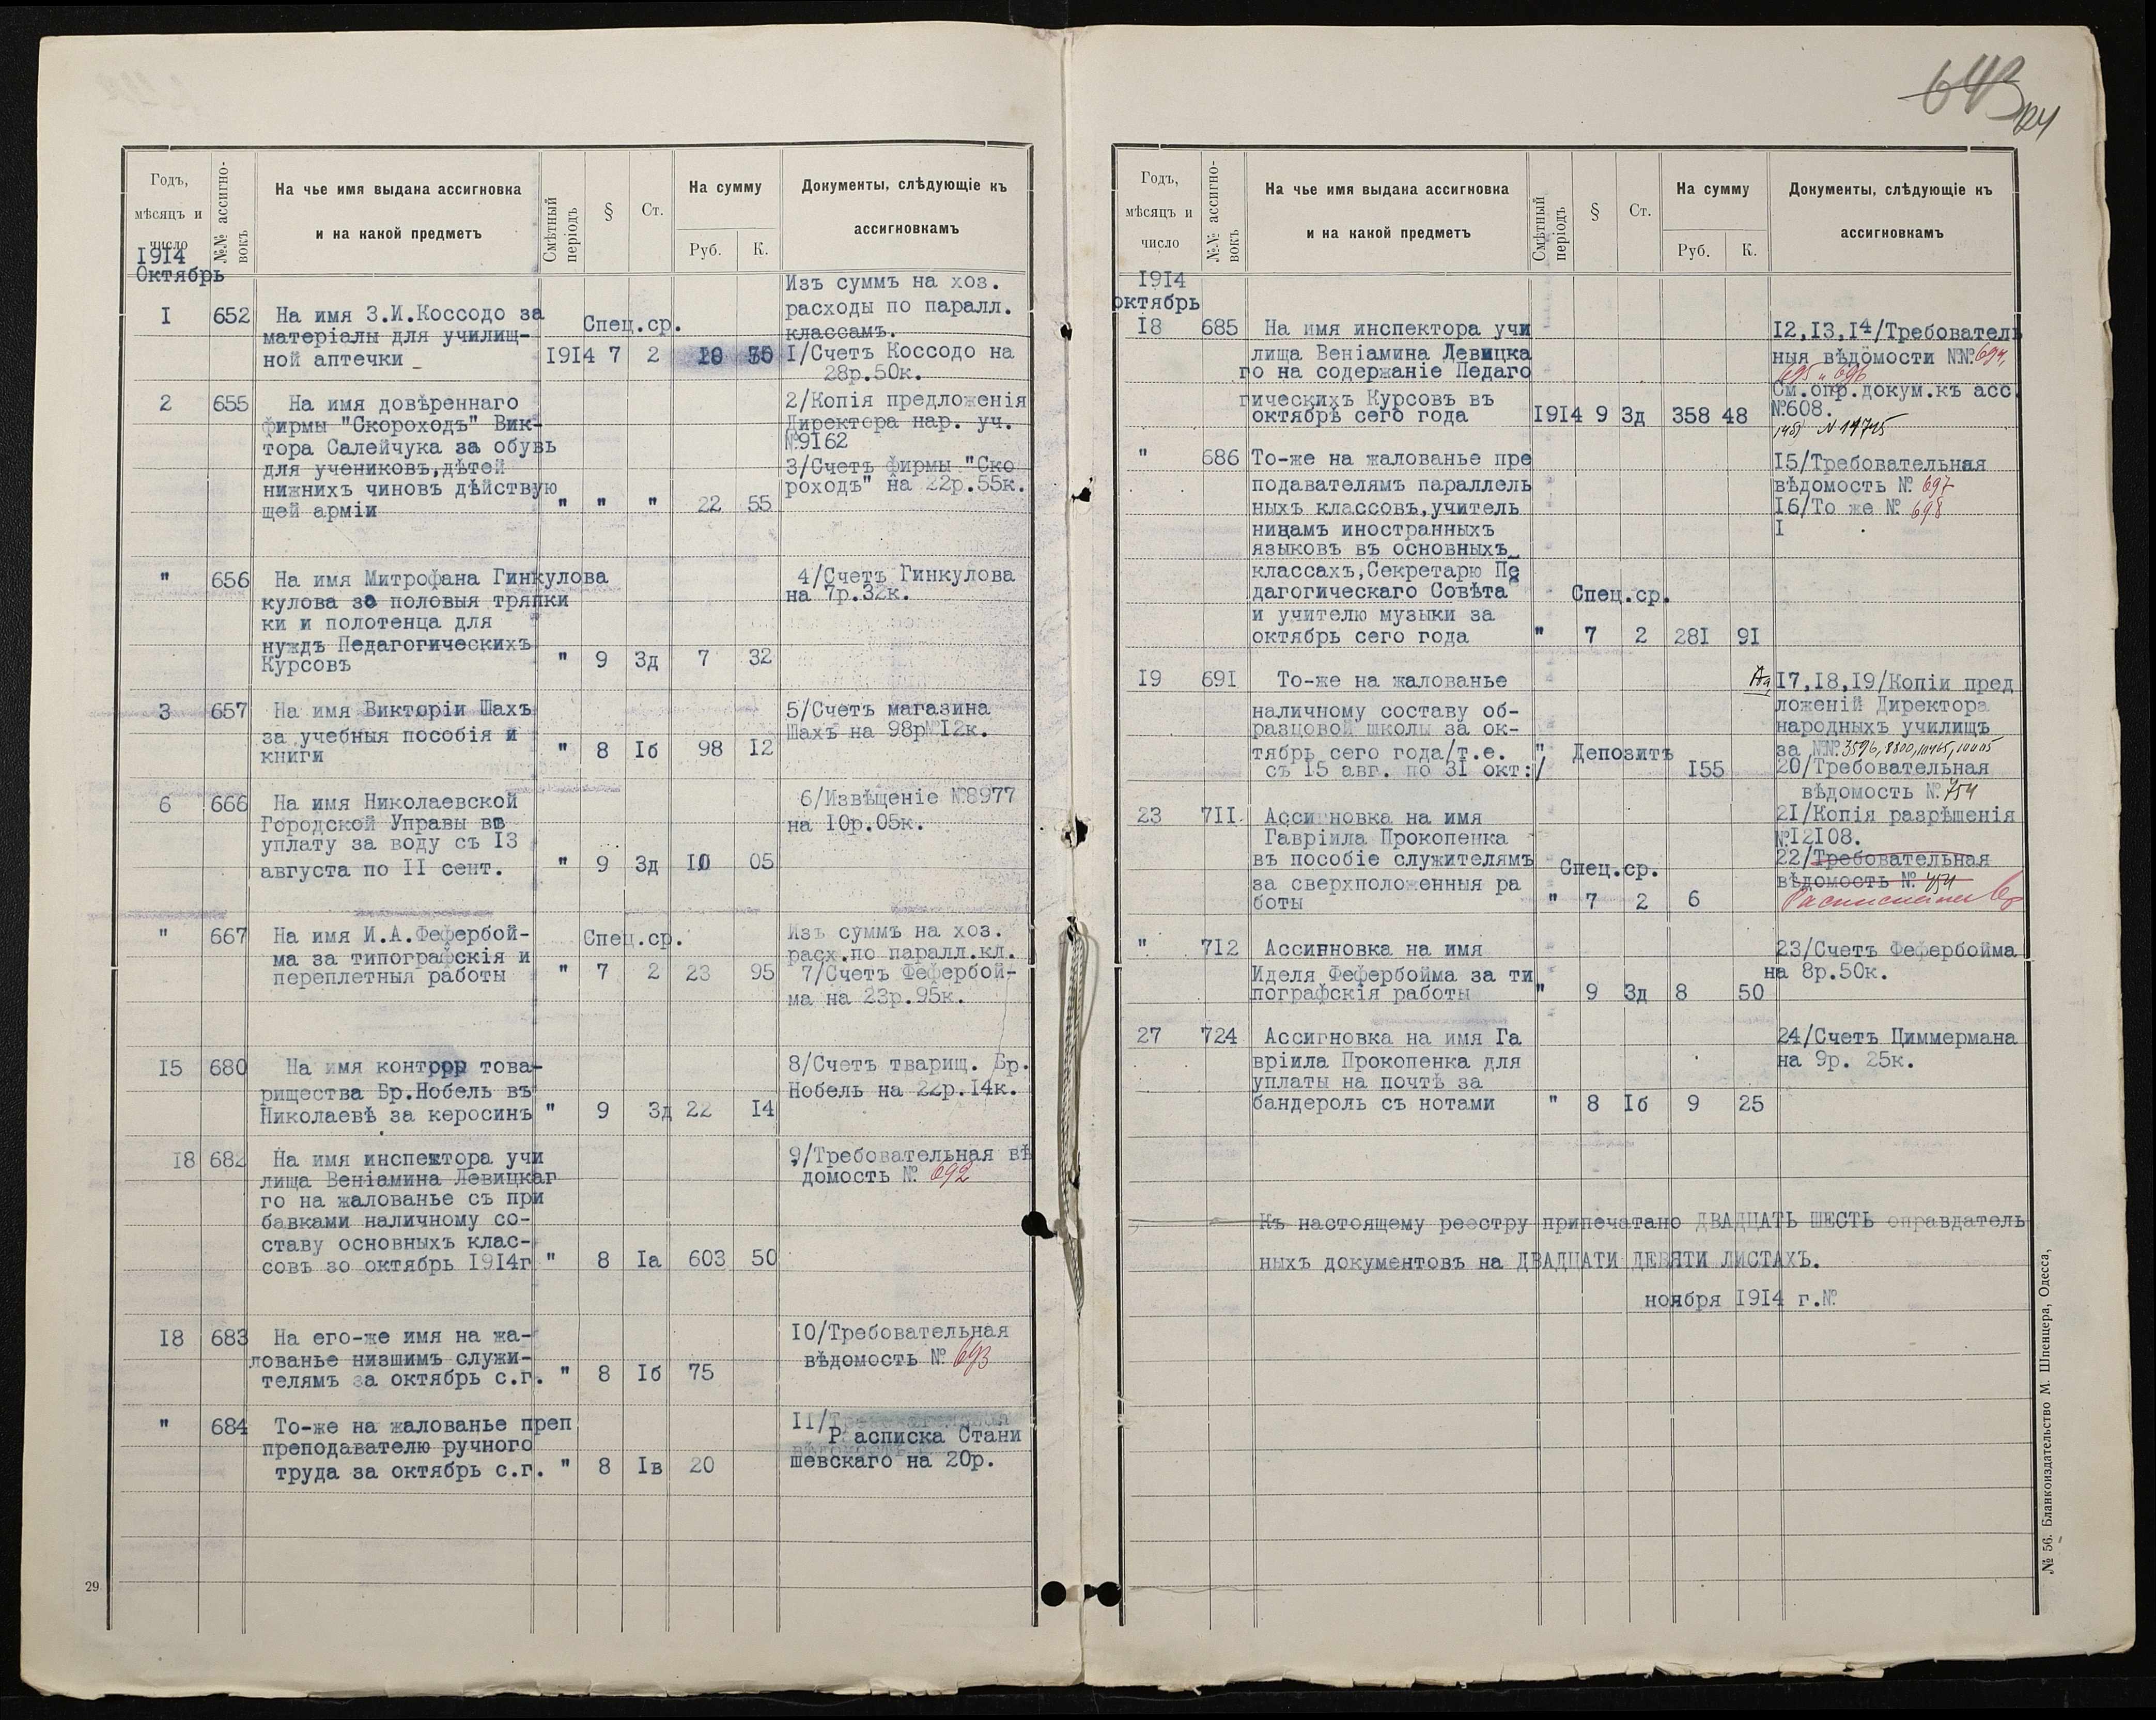 643
124
Годъ,
мѣсяцъ и
число
№№ ассигно-
вокъ
На чье имя выдана ассигновка
и на какой предметъ
Смѣтный
періодъ
§
Ст.
На сумму
Руб.
К.
Документы, слѣдующіе къ
ассигновкамъ
1914
Октябрь
Изъ суммъ на хоз.
расходы по паралл.
классамъ.
I 652 На имя З.И.Коссодо за
матеріалы для училищ-
ной аптечки
Спец.ср.
1914 7 2
I/Счетъ Коссодо на
28р.50к.
2 655 На имя довѣреннаго
фирмы "Скороходъ" Вик-
тора Салейчука за обувь
для учениковъ,дѣтей
нижнихъ чиновъ дѣйствую
щей арміи " " " 22 55
2/Копія предложенія
Директора нар. уч.
№9162
3/Счетъ фирмы "Ско
роходъ" на 22р.55к.
" 656 На имя Митрофана Гинкулова
кулова за половыя тряпки
ки и полотенца для
нуждъ Педагогическихъ
Курсовъ " 9 3д 7 32
4/Счетъ Гинкулова
на 7р.32к.
3 657 На имя Викторіи Шахъ
за учебныя пособія и
книги " 8 Iб 98 I2
5/Счетъ магазина
Шахъ на 98р.I2к.
6 666 На имя Николаевской
Городской Управы въ
уплату за воду съ I3
августа по II сент. " 9 3д I0 05
6/Извѣщеніе №8977
на I0р.05к.
" 667 На имя И.А.Фефербой-
ма за типографскія и
переплетныя работы
Спец.ср.
" 7 2 23 95
Изъ суммъ на хоз.
расх.по паралл.кл.
7/Счетъ Фефербой-
ма на 23р.95к.
I5 680 На имя конторр това-
рищества Бр.Нобель въ
Николаевѣ за керосинъ " 9 3д 22 I4
8/Счетъ тварищ. Бр.
Нобель на 22р.I4к.
I8 682 На имя инспектора учи
лища Веніамина Левицкаг
го на жалованье съ при
бавками наличному со-
ставу основныхъ клас-
совъ зо октябрь I9I4г " 8 Iа 603 50
9/Требовательная вѣ
домость № 692
I8 683 На его-же имя на жа-
лованье низшимъ служи-
телямъ за октябрь с.г. " 8 Iб 75
I0/Требовательная
вѣдомость № 693
" 684 То-же на жалованье преп
преподавателю ручного
труда за октябрь с.г. " 8 Iв 20
II/
Расписка Стани
шевскаго на 20р.
29
Годъ,
мѣсяцъ и
число
№№ ассигно-
вокъ
На чье имя выдана ассигновка
и на какой предметъ
Смѣтный
періодъ
§
Ст.
На сумму
Руб.
К.
Документы, слѣдующіе къ
ассигновкамъ
I9I4
октябрь
I8 685 На имя инспектора учи
лища Веніамина Левицка
го на содержаніе Педаго
гическихъ Курсовъ въ
октябрѣ сего года I9I4 9 3д 358 48
I2,I3,I4/Требователь
ныя вѣдомости №№ 694,
695 и 696
См.опр.докум.къ асс.
№608.
№ 14745
" 686 То-же на жалованье пре
подавателямъ параллель
ныхъ классовъ,учитель
ницамъ иностранныхъ
языковъ въ основныхъ
классахъ,Секретарю Пе
дагогическаго Совѣта
и учителю музыки за
октябрь сего года
Спец.ср.
" 7 2 28I 9I
I5/Требовательная
вѣдомость № 697
I6/То же № 698
I
I9 69I То-же на жалованье
наличному составу об-
разцовой школы за ок-
тябрь сего года/т.е.
съ I5 авг. по 3I окт:/
" Депозитъ
I55
I7,I8,I9/Копіи пред
ложеній Директора
народныхъ училищъ
за №№ 3596, 8800, 10465, 10005
20/Требовательная
вѣдомость № 754
23 7II Ассигновка на имя
Гавріила Прокопенка
въ пособіе служителямъ
за сверхположенныя ра
боты
Спец.ср.
" 7 2 6
2I/Копія разрѣшенія
№I2I08.
22/Требовательная
вѣдомость № 454
" 7I2 Ассинновка на имя
Иделя Фефербойма за ти
пографскія работы " 9 3д 8 50
23/Счетъ Фефербойма
на 8р.50к.
27 724 Ассигновка на имя Га
вріила Прокопенка для
уплаты на почтѣ за
бандероль съ нотами " 8 Iб 9 25
24/Счетъ Циммермана
на 9р. 25к.
Къ настоящему реестру припечатано ДВАДЦАТЬ ШЕСТЬ оправдатель
ныхъ документовъ на ДВАДЦАТИ ДЕВЯТИ ЛИСТАХЪ.
ноября I9I4 г.№
№ 56. Бланкоиздательство М. Шпенцера, Одесса,